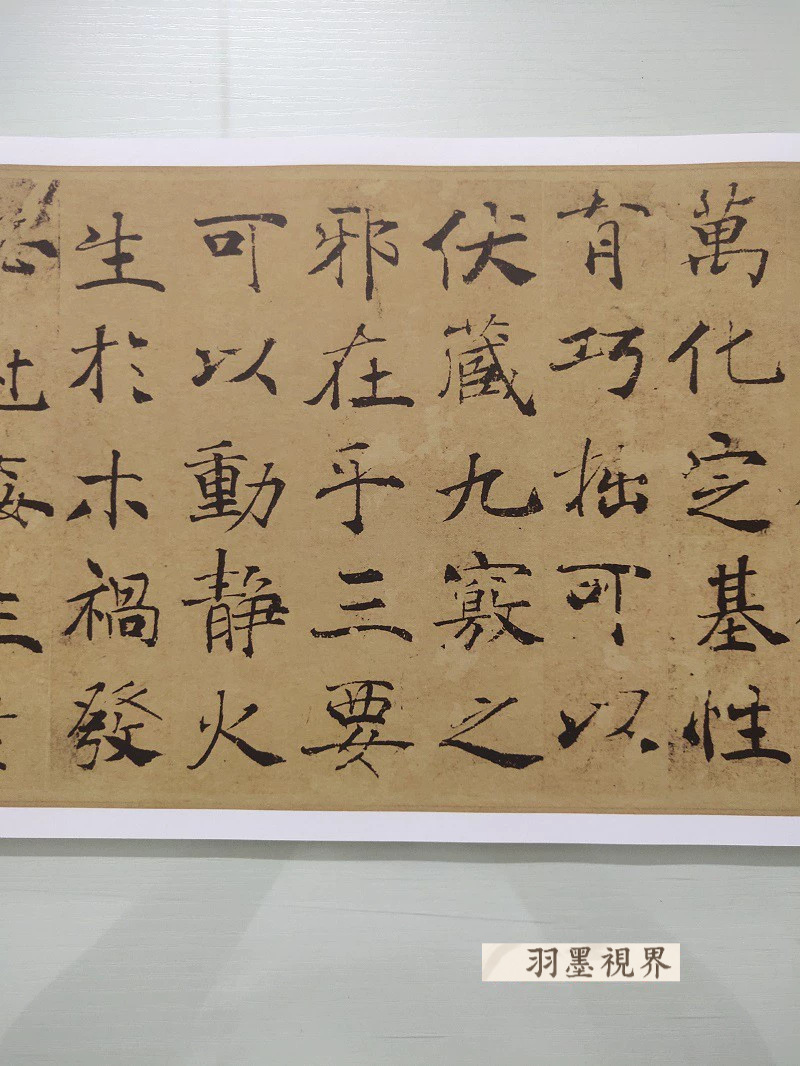 萬化定基性
有巧拙可以
伏藏九竅之
邪在乎三要
可以動靜火
生於木禍發
必
羽墨視界